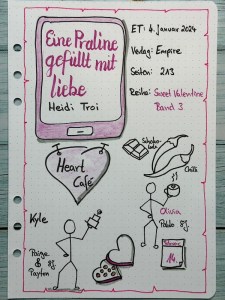 Eine Praline
gefüllt mit
liebe
Heidi Troi
ET: 4. Januar 2024
Verlag: Empire
Seiten: 213
Reihe: Sweet Valentine
Band 3
Heart
Café
Schoko-
Chili
Kyle
Paige
&
Payton
Olivia
Pablo
14